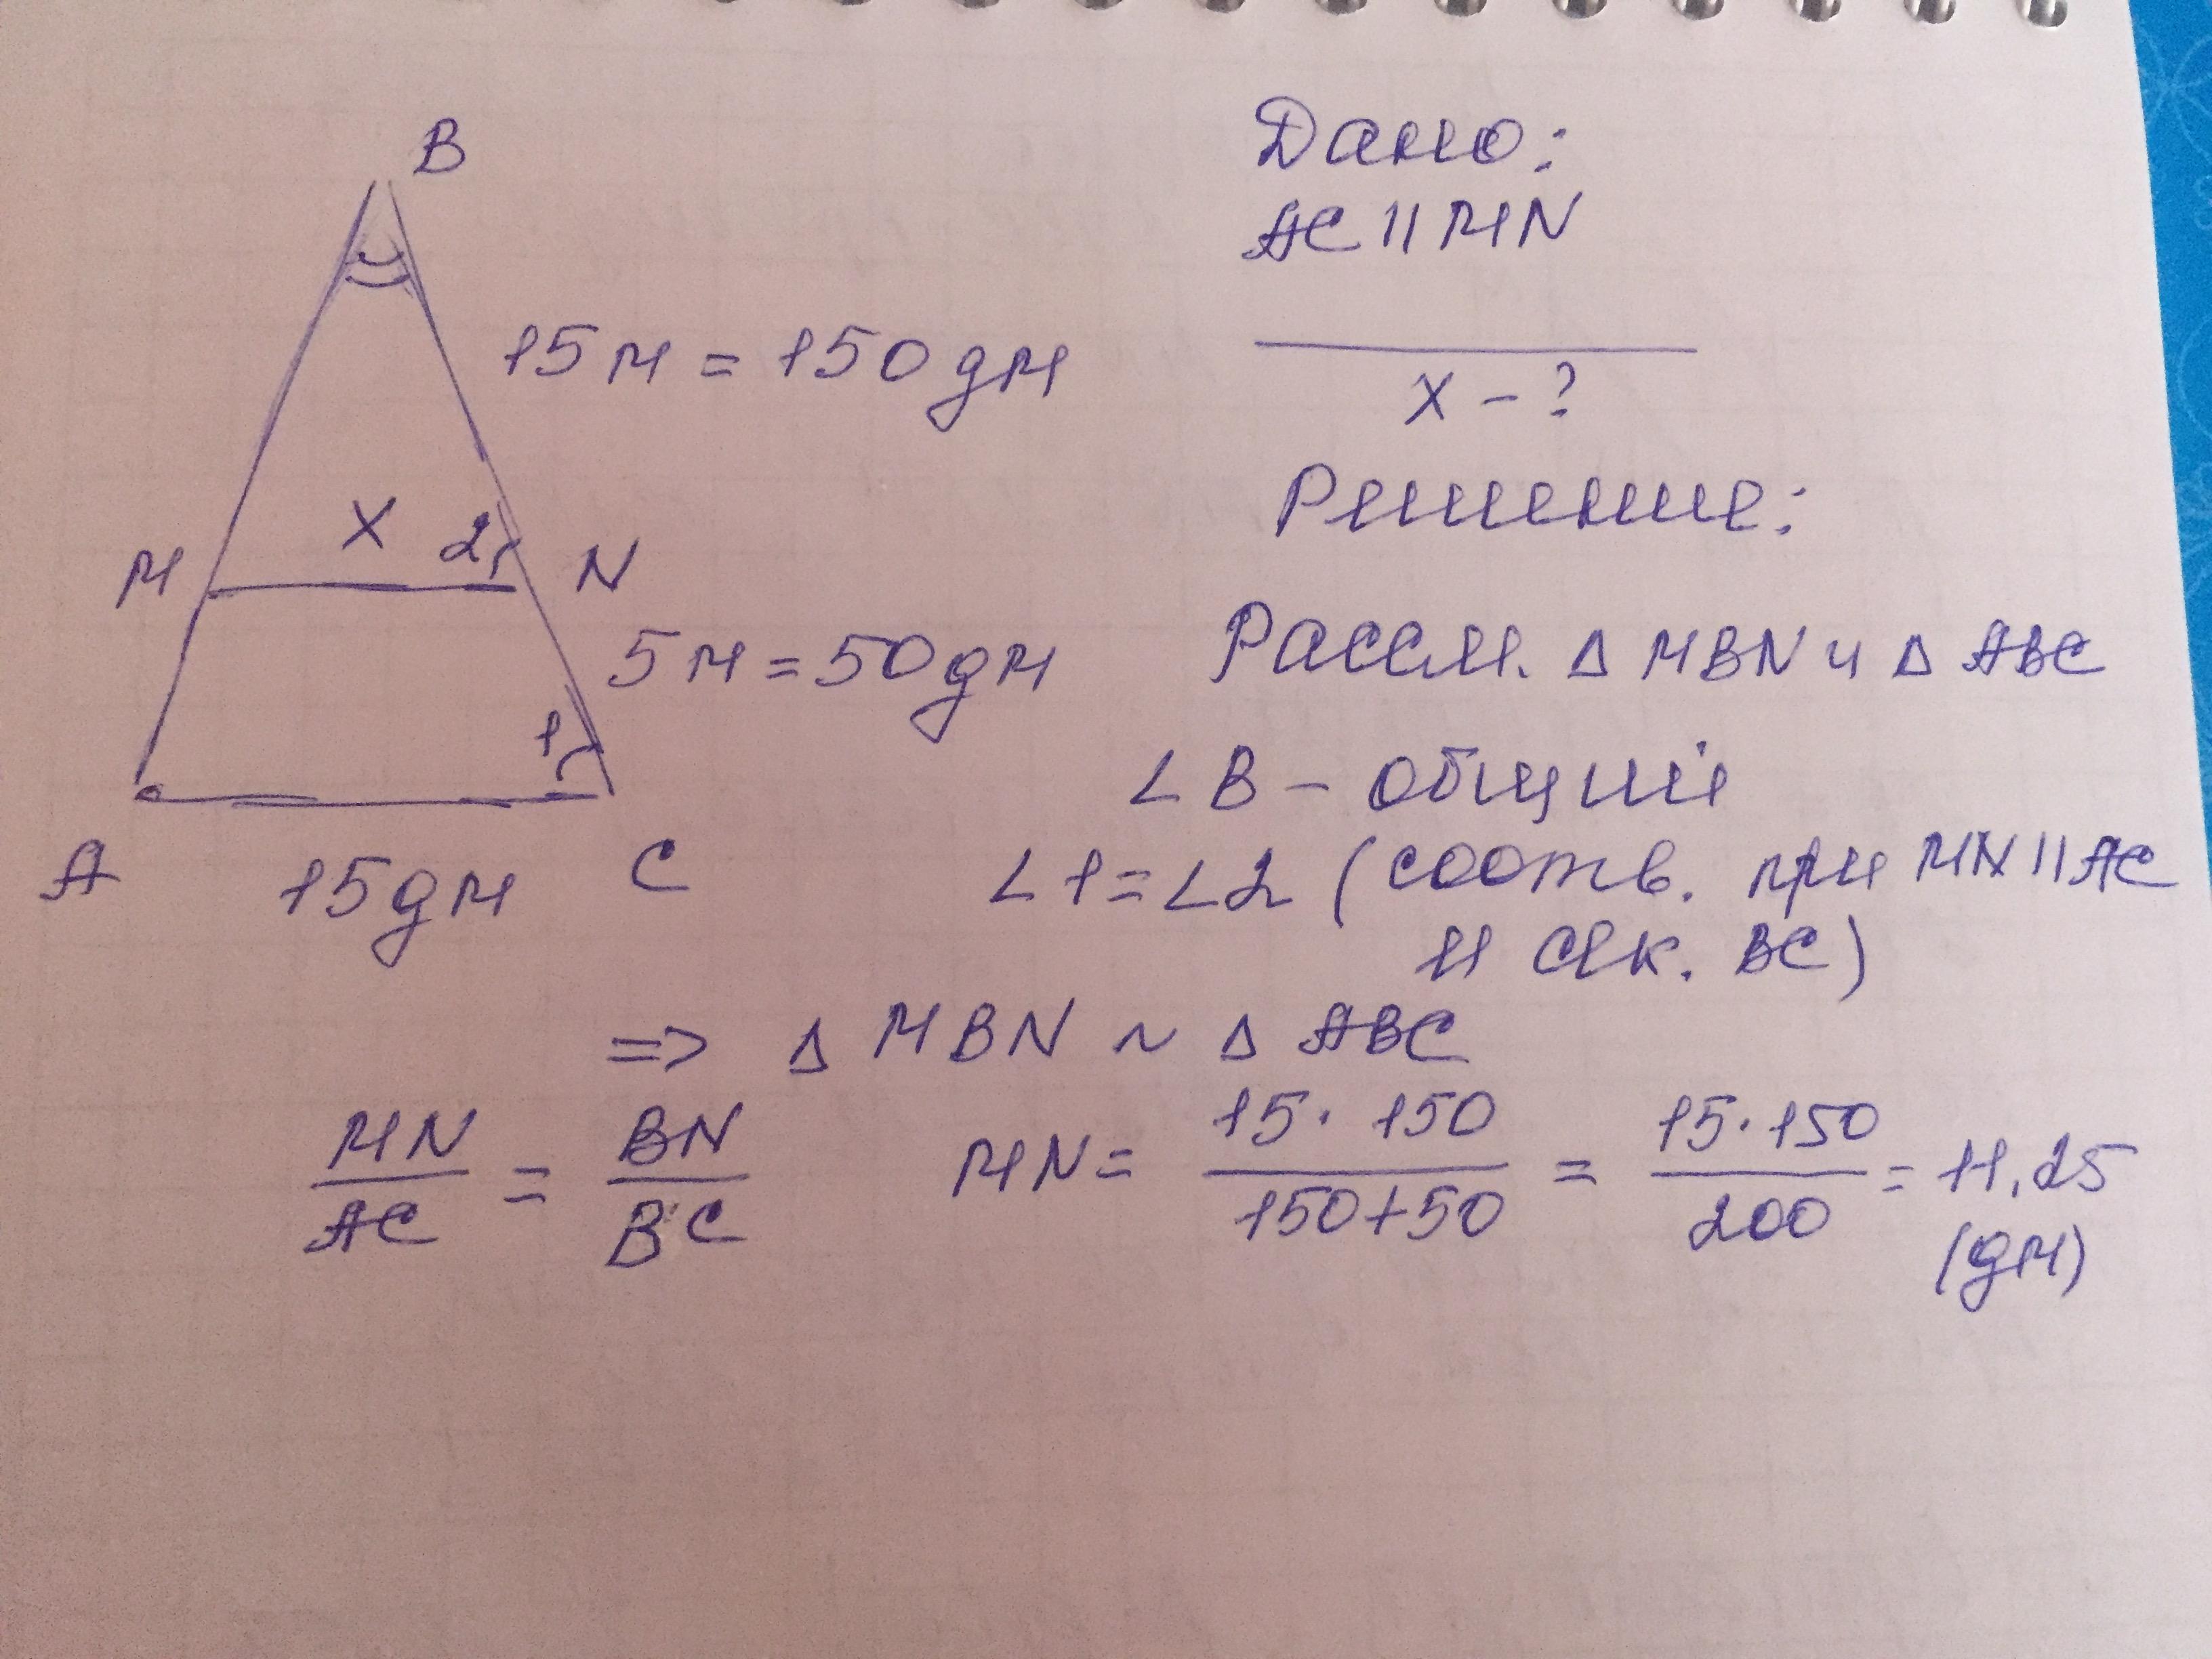 B
15м = 150дм
M
X
2
N
5м = 50дм
1
A
15дм
C
Дано:
AC || MN
X - ?
Решение:
Рассм. Δ MBN и Δ ABC
∠ B - общий
∠ 1 = ∠ 2 (соотв. при MN || AC
и сек. BC)
=> Δ MBN ~ Δ ABC
MN/AC = BN/BC MN = 15 · 150/150+50 = 15 · 150/200 = 11,25
(дм)